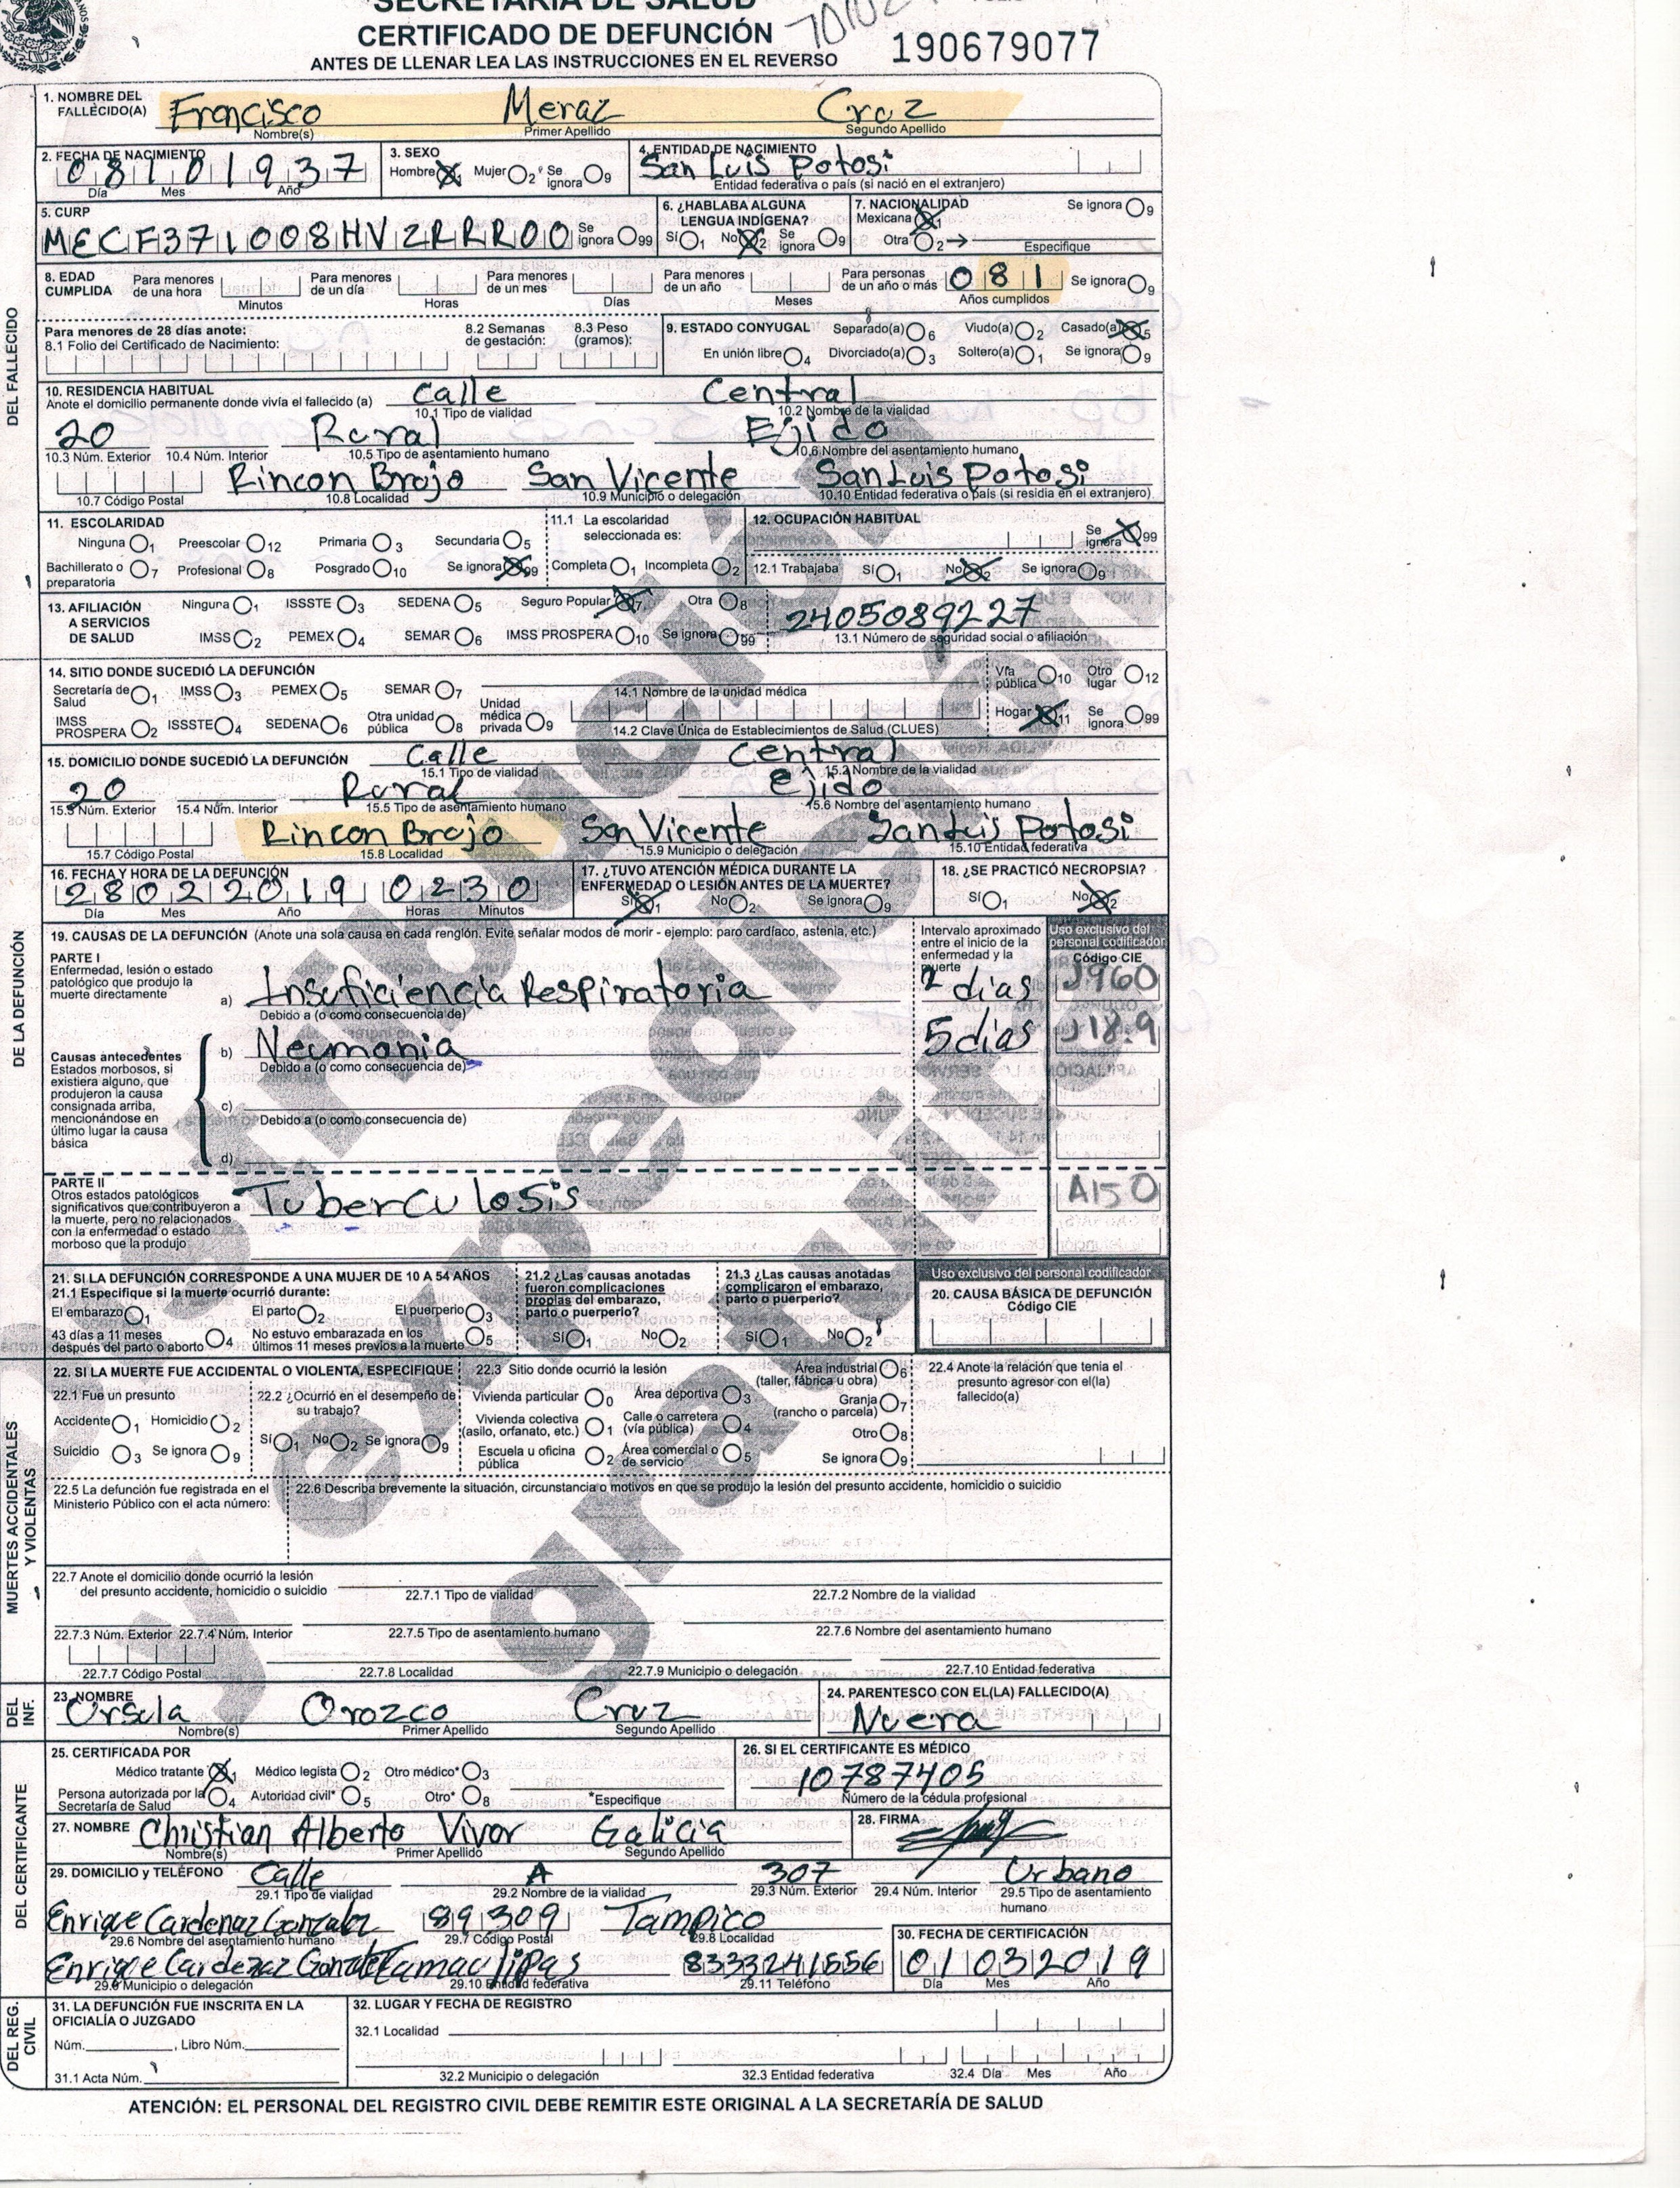 SECRETARÍA DE SALUD
CERTIFICADO DE DEFUNCIÓN
ANTES DE LLENAR LEA LAS INSTRUCCIONES EN EL REVERSO
190679077
DEL FALLECIDO
1. NOMBRE DEL FALLECIDO(A) Francisco Meraz Cruz
Nombre(s) Primer Apellido Segundo Apellido
2. FECHA DE NACIMIENTO 08101937
Día Mes Año
3. SEXO
Hombre 1 Mujer 2 Se ignora 9
4. ENTIDAD DE NACIMIENTO
San Luis Potosi
Entidad federativa o país (si nació en el extranjero)
5. CURP
MECF371008HVZRRR00 Se ignora 99
6. ¿HABLABA ALGUNA LENGUA INDÍGENA?
Sí 1 No 2 Se ignora 9
7. NACIONALIDAD Se ignora 9
Mexicana 1
Otra 2 Especifique
8. EDAD CUMPLIDA
Para menores de una hora Minutos
Para menores de un día Horas
Para menores de un mes Días
Para menores de un año Meses
Para personas de un año o más 081 Años cumplidos
Se ignora 9
Para menores de 28 días anote:
8.1 Folio del Certificado de Nacimiento:
8.2 Semanas de gestación:
8.3 Peso (gramos):
9. ESTADO CONYUGAL Separado(a) 6 Viudo(a) 2 Casado(a) 5
En unión libre 4 Divorciado(a) 3 Soltero(a) 1 Se ignora 9
10. RESIDENCIA HABITUAL
Anote el domicilio permanente donde vivía el fallecido (a) Calle Central
10.1 Tipo de vialidad 10.2 Nombre de la vialidad
20 Rural Ejido
10.3 Núm. Exterior 10.4 Núm. Interior 10.5 Tipo de asentamiento humano 10.6 Nombre del asentamiento humano
Rincon Brujo San Vicente San Luis Potosi
10.7 Código Postal 10.8 Localidad 10.9 Municipio o delegación 10.10 Entidad federativa o país (si residía en el extranjero)
11. ESCOLARIDAD
Ninguna 1 Preescolar 12 Primaria 3 Secundaria 5
Bachillerato o preparatoria 7 Profesional 8 Posgrado 10 Se ignora 99
11.1 La escolaridad seleccionada es:
Completa 1 Incompleta 2
12. OCUPACIÓN HABITUAL
Se ignora 99
12.1 Trabajaba Sí 1 No 2 Se ignora 9
13. AFILIACIÓN A SERVICIOS DE SALUD
Ninguna 1 ISSSTE 3 SEDENA 5 Seguro Popular 7 Otra 8
IMSS 2 PEMEX 4 SEMAR 6 IMSS PROSPERA 10 Se ignora 99
2405089227
13.1 Número de seguridad social o afiliación
DE LA DEFUNCIÓN
14. SITIO DONDE SUCEDIÓ LA DEFUNCIÓN
Secretaría de Salud 1 IMSS 3 PEMEX 5 SEMAR 7
IMSS PROSPERA 2 ISSSTE 4 SEDENA 6 Otra unidad pública 8 Unidad médica privada 9
14.1 Nombre de la unidad médica
14.2 Clave Única de Establecimientos de Salud (CLUES)
Vía pública 10 Otro lugar 12
Hogar 11 Se ignora 99
15. DOMICILIO DONDE SUCEDIÓ LA DEFUNCIÓN Calle Central
15.1 Tipo de vialidad 15.2 Nombre de la vialidad
20 Rural Ejido
15.3 Núm. Exterior 15.4 Núm. Interior 15.5 Tipo de asentamiento humano 15.6 Nombre del asentamiento humano
Rincon Brujo San Vicente San Luis Potosi
15.7 Código Postal 15.8 Localidad 15.9 Municipio o delegación 15.10 Entidad federativa
16. FECHA Y HORA DE LA DEFUNCIÓN
28022019 0230
Día Mes Año Horas Minutos
17. ¿TUVO ATENCIÓN MÉDICA DURANTE LA ENFERMEDAD O LESIÓN ANTES DE LA MUERTE?
Sí 1 No 2 Se ignora 9
18. ¿SE PRACTICÓ NECROPSIA?
Sí 1 No 2
19. CAUSAS DE LA DEFUNCIÓN (Anote una sola causa en cada renglón. Evite señalar modos de morir - ejemplo: paro cardíaco, astenia, etc.)
Intervalo aproximado entre el inicio de la enfermedad y la muerte
Uso exclusivo del personal codificador
Código CIE
PARTE I
Enfermedad, lesión o estado patológico que produjo la muerte directamente
a) Insuficiencia Respiratoria 2 dias J960
Debido a (o como consecuencia de)
Causas antecedentes
Estados morbosos, si existiera alguno, que produjeron la causa consignada arriba, mencionándose en último lugar la causa básica
b) Neumonia 5 dias J18.9
Debido a (o como consecuencia de)
c)
Debido a (o como consecuencia de)
d)
PARTE II
Otros estados patológicos significativos que contribuyeron a la muerte, pero no relacionados con la enfermedad o estado morboso que la produjo
Tuberculosis A150
21. SI LA DEFUNCIÓN CORRESPONDE A UNA MUJER DE 10 A 54 AÑOS
21.1 Especifique si la muerte ocurrió durante:
El embarazo 1 El parto 2 El puerperio 3
43 días a 11 meses después del parto o aborto 4 No estuvo embarazada en los últimos 11 meses previos a la muerte 5
21.2 ¿Las causas anotadas fueron complicaciones propias del embarazo, parto o puerperio?
Sí 1 No 2
21.3 ¿Las causas anotadas complicaron el embarazo, parto o puerperio?
Sí 1 No 2
Uso exclusivo del personal codificador
20. CAUSA BÁSICA DE DEFUNCIÓN
Código CIE
MUERTES ACCIDENTALES Y VIOLENTAS
22. SI LA MUERTE FUE ACCIDENTAL O VIOLENTA, ESPECIFIQUE
22.1 Fue un presunto
Accidente 1 Homicidio 2
Suicidio 3 Se ignora 9
22.2 ¿Ocurrió en el desempeño de su trabajo?
Sí 1 No 2 Se ignora 9
22.3 Sitio donde ocurrió la lesión
Vivienda particular 0 Área deportiva 3 Área industrial (taller, fábrica u obra) 6
Vivienda colectiva (asilo, orfanato, etc.) 1 Calle o carretera (vía pública) 4 Granja (rancho o parcela) 7
Otro 8
Escuela u oficina pública 2 Área comercial o de servicio 5 Se ignora 9
22.4 Anote la relación que tenia el presunto agresor con el(la) fallecido(a)
22.5 La defunción fue registrada en el Ministerio Público con el acta número:
22.6 Describa brevemente la situación, circunstancia o motivos en que se produjo la lesión del presunto accidente, homicidio o suicidio
22.7 Anote el domicilio donde ocurrió la lesión del presunto accidente, homicidio o suicidio
22.7.1 Tipo de vialidad 22.7.2 Nombre de la vialidad
22.7.3 Núm. Exterior 22.7.4 Núm. Interior 22.7.5 Tipo de asentamiento humano 22.7.6 Nombre del asentamiento humano
22.7.7 Código Postal 22.7.8 Localidad 22.7.9 Municipio o delegación 22.7.10 Entidad federativa
DEL INF.
23. NOMBRE
Ursula Orozco Cruz
Nombre(s) Primer Apellido Segundo Apellido
24. PARENTESCO CON EL(LA) FALLECIDO(A)
Nuera
DEL CERTIFICANTE
25. CERTIFICADA POR
Médico tratante 1 Médico legista 2 Otro médico* 3
Persona autorizada por la Secretaría de Salud 4 Autoridad civil* 5 Otro* 8 *Especifique
26. SI EL CERTIFICANTE ES MÉDICO
10787405
Número de la cédula profesional
27. NOMBRE Christian Alberto Vivar Galicia
Nombre(s) Primer Apellido Segundo Apellido
28. FIRMA
29. DOMICILIO y TELÉFONO Calle A 307 Urbano
29.1 Tipo de vialidad 29.2 Nombre de la vialidad 29.3 Núm. Exterior 29.4 Núm. Interior 29.5 Tipo de asentamiento humano
Enrique Cardenaz Gonzalez 89309 Tampico
29.6 Nombre del asentamiento humano 29.7 Código Postal 29.8 Localidad
Enrique Cardenaz Tamaulipas 8333241556
29.9 Municipio o delegación 29.10 Entidad federativa 29.11 Teléfono
30. FECHA DE CERTIFICACIÓN
01032019
Día Mes Año
DEL REG. CIVIL
31. LA DEFUNCIÓN FUE INSCRITA EN LA OFICIALÍA O JUZGADO
Núm. , Libro Núm.
31.1 Acta Núm.
32. LUGAR Y FECHA DE REGISTRO
32.1 Localidad
32.2 Municipio o delegación 32.3 Entidad federativa 32.4 Día Mes Año
ATENCIÓN: EL PERSONAL DEL REGISTRO CIVIL DEBE REMITIR ESTE ORIGINAL A LA SECRETARÍA DE SALUD